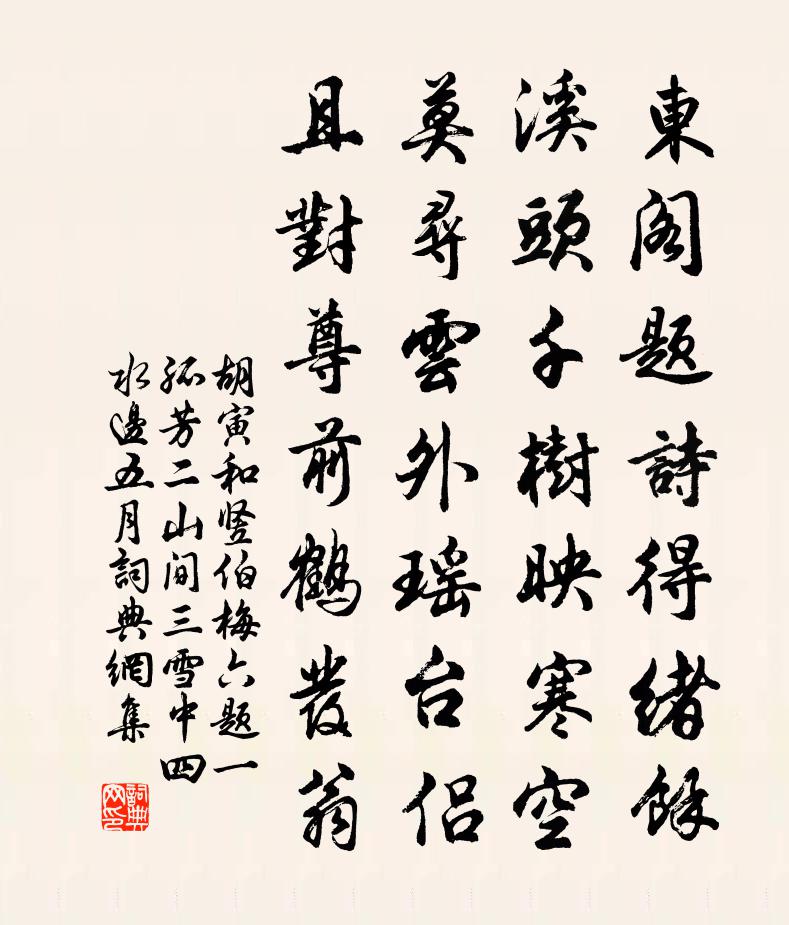 東閣題詩得緒餘
溪頭千樹映寒空
莫尋雲外瑶台侣
且對尊前鶴發翁
胡寅和竖伯梅六題一
孤芳二山間三雪中四
水邊五月詞典網集
詞典网印